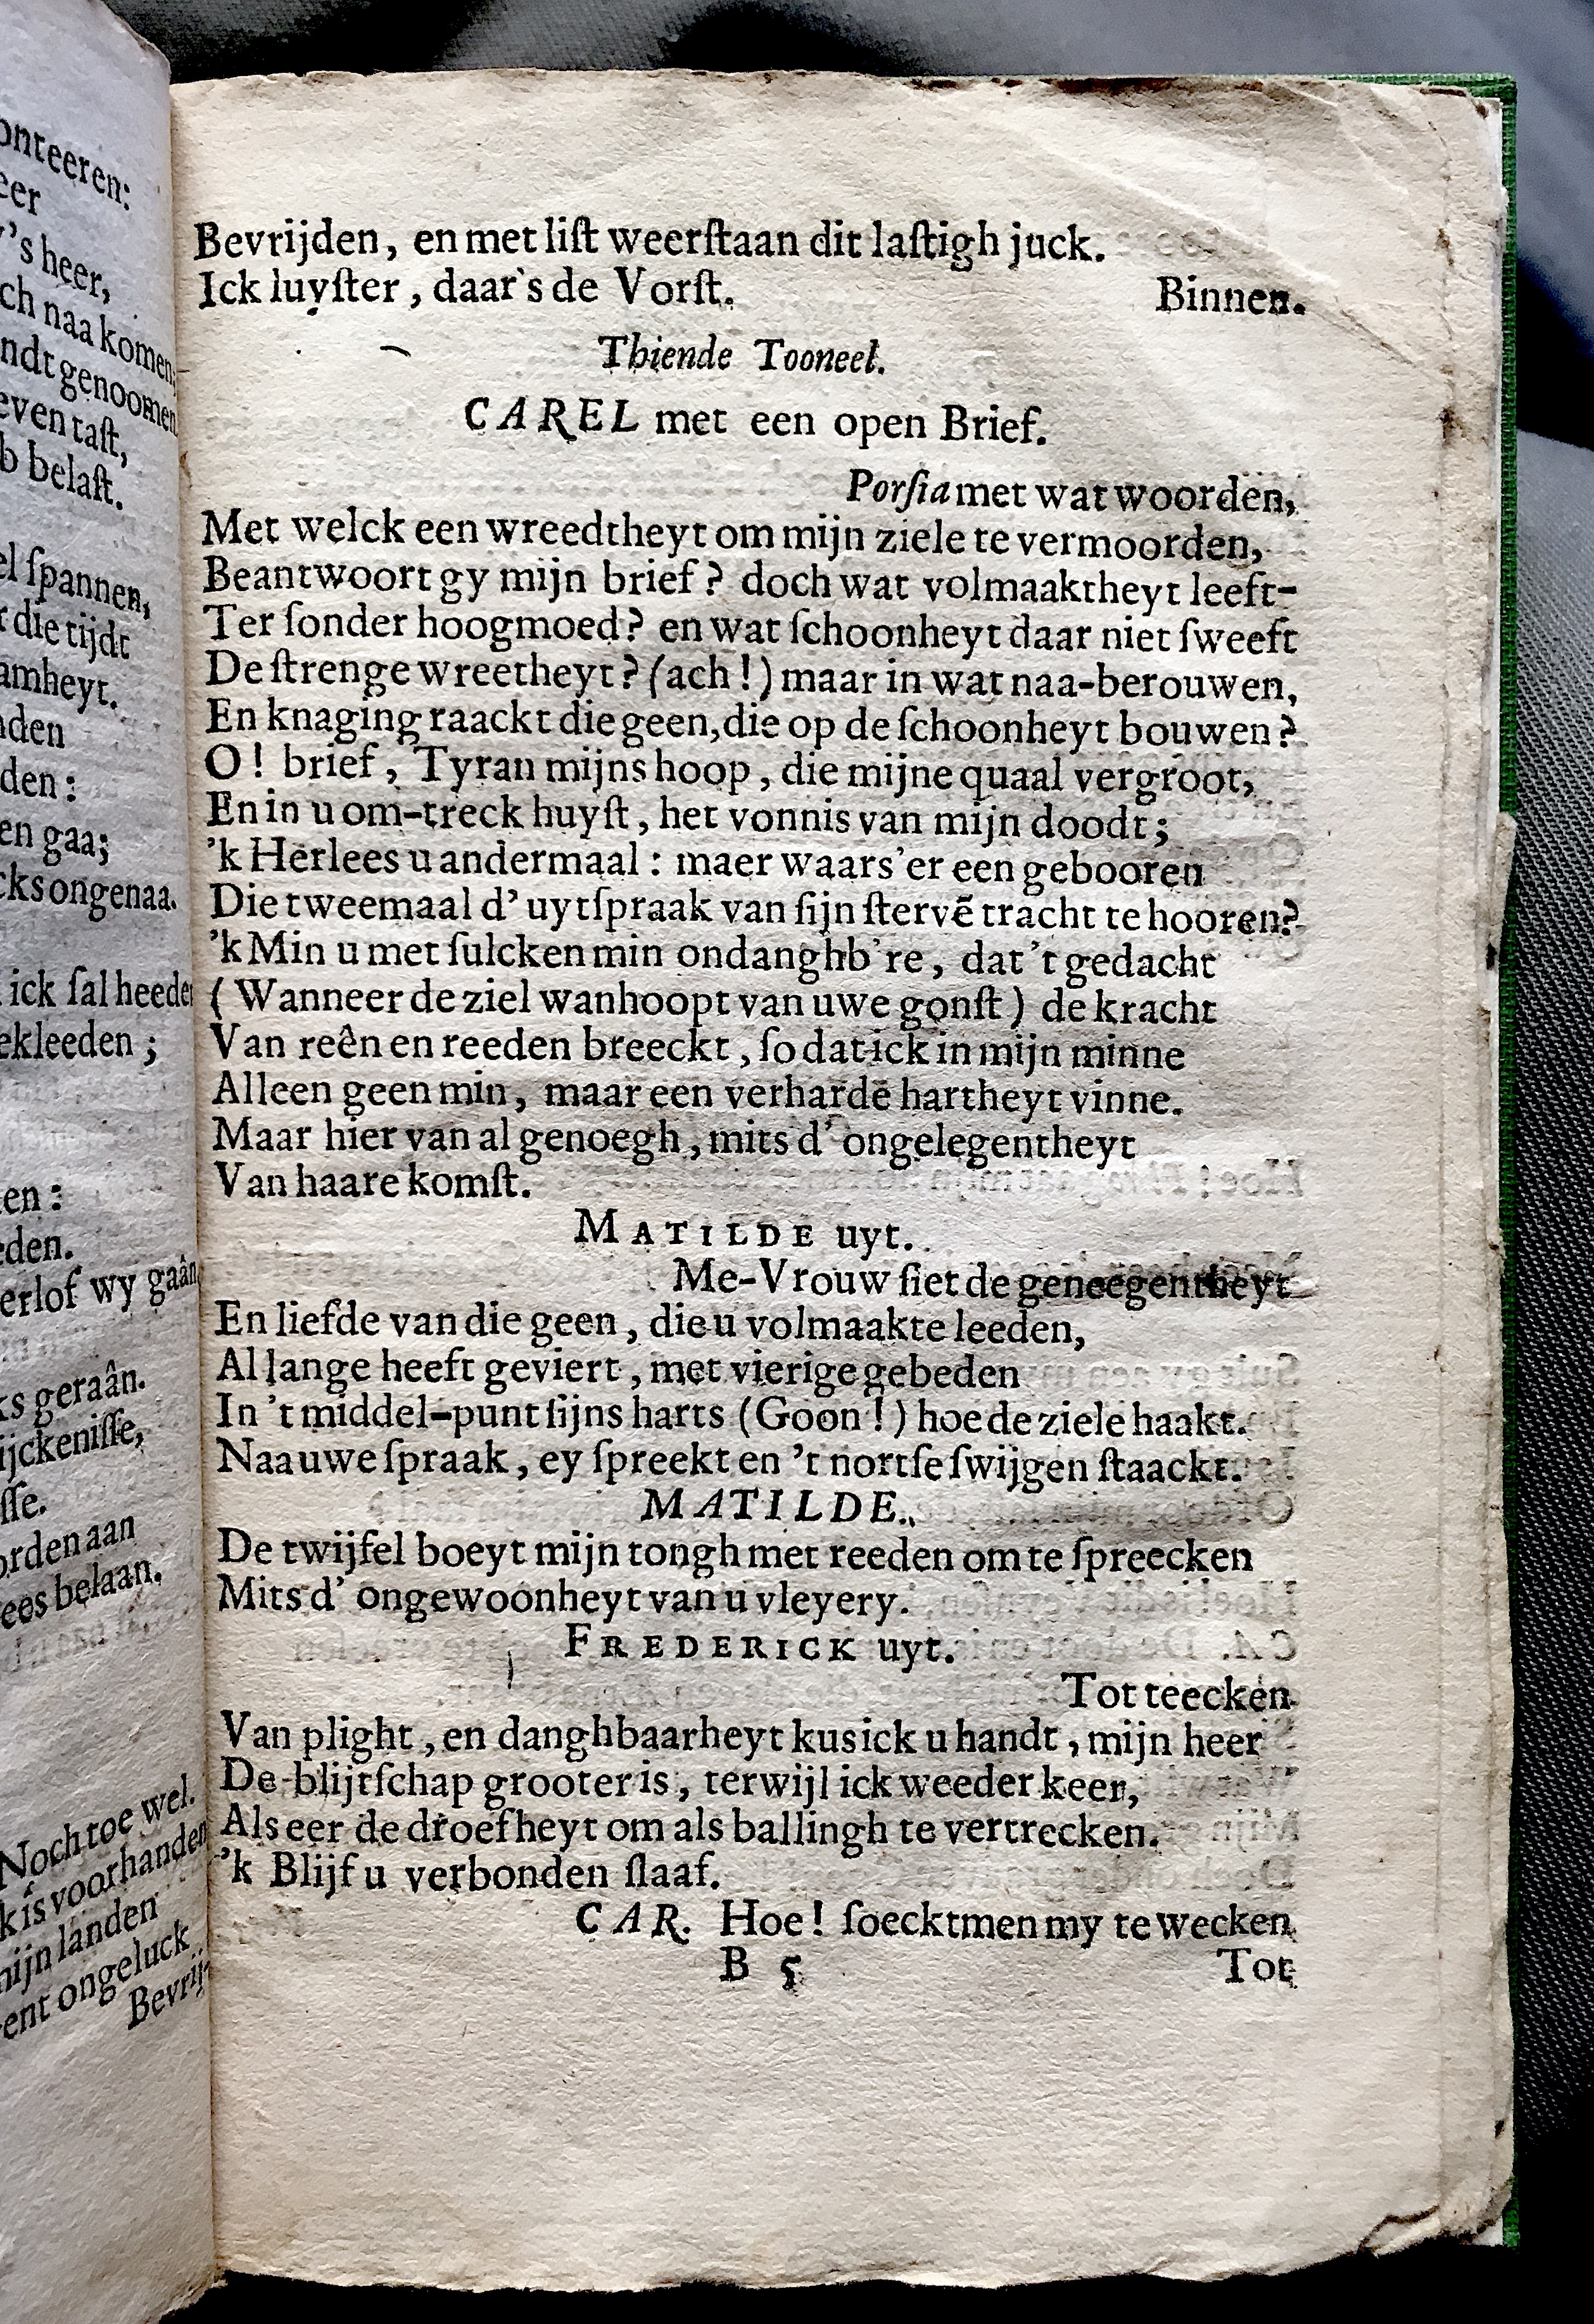 onteeren:
eer
y's heer,
ch naa komen,
ndt genoomen
even taſt,
b belaſt.
el ſpannen,
r die tijdt
amheyt.
nden
den:
en gaa;
cks ongenaa.
ick ſal heeden
ekleeden;
en:
eden.
erlof wy gaân,
ks geraân.
ijckeniſſe,
ſſe.
orden aan
ees belaan.
Noch toe wel.
k is voorhanden
mijn landen
ent ongeluck
Bevrij-
Bevrijden, en met liſt weerſtaan dit laſtigh juck.
Ick luyſter, daar's de Vorſt. Binnen.
Thiende Tooneel.
CAREL met een open Brief.
Porſia met wat woorden,
Met welck een wreedtheyt om mijn ziele te vermoorden,
Beantwoort gy mijn brief? doch wat volmaaktheyt leeft-
Ter ſonder hoogmoed? en wat ſchoonheyt daar niet ſweeft
De ſtrenge wreetheyt? (ach!) maar in wat naa-berouwen,
En knaging raackt die geen, die op de ſchoonheyt bouwen?
O! brief, Tyran mijns hoop, die mijne quaal vergroot,
En in u om-treck huyſt, het vonnis van mijn doodt;
'k Herlees u andermaal: maer waars'er een gebooren
Die tweemaal d'uytſpraak van ſijn ſtervē tracht te hooren?
'k Min u met ſulcken min ondanghb're, dat 't gedacht
(Wanneer de ziel wanhoopt van uwe gonſt) de kracht
Van reên en reeden breeckt, ſo dat ick in mijn minne
Alleen geen min, maar een verhardē hartheyt vinne.
Maar hier van al genoegh, mits d'ongelegentheyt
Van haare komſt.
MATILDE uyt.
Me-Vrouw ſiet de geneegentheyt
En liefde van die geen, die u volmaakte leeden,
Al lange heeft geviert, met vierige gebeden
In 't middel-punt ſijns harts (Goon!) hoe de ziele haakt.
Naa uwe ſpraak, ey ſpreekt en 't nortſe ſwijgen ſtaackt.
MATILDE.
De twijfel boeyt mijn tongh met reeden om te ſpreecken
Mits d'ongewoonheyt van u vleyery.
FREDERICK uyt.
Tot teecken
Van plight, en danghbaarheyt kus ick u handt, mijn heer
De blijtſchap grooter is, terwijl ick weeder keer,
Als eer de droefheyt om als ballingh te vertrecken.
'k Blijf u verbonden ſlaaf.
CAR. Hoe! ſoeckt men my te wecken
B 5 Tot